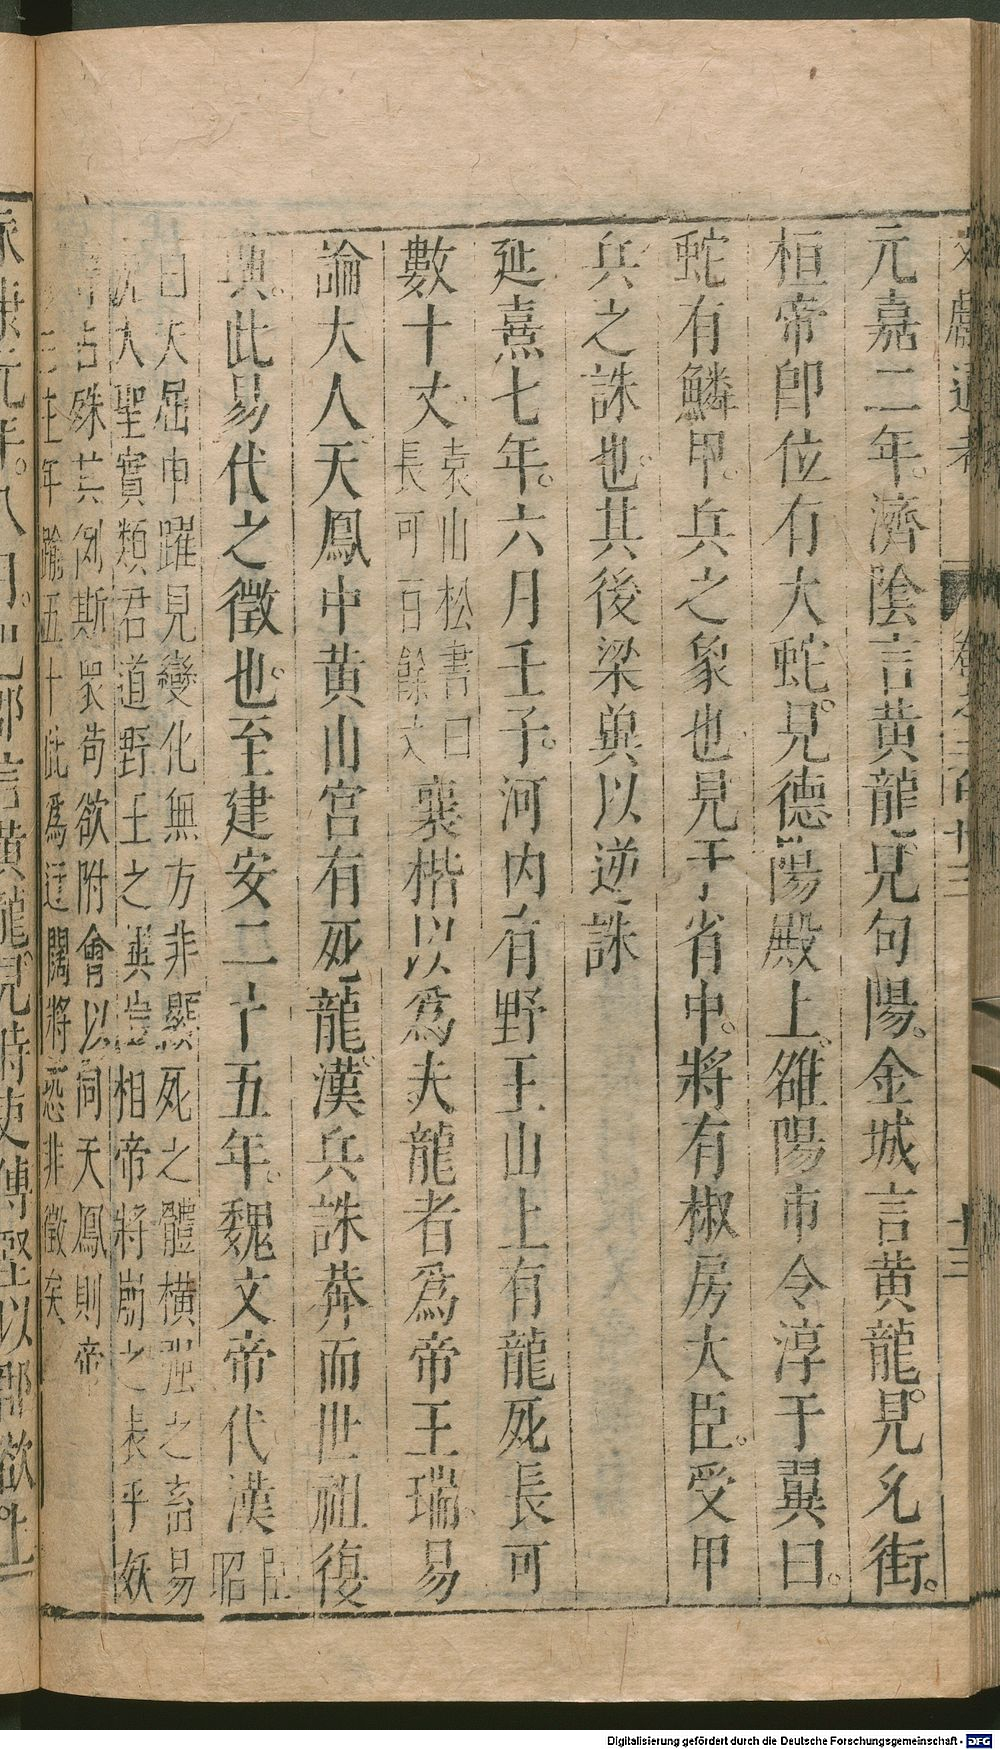 元嘉二年濟陰言黄龍見句陽金城言黄龍見允街
桓帝即位有大蛇見德陽殿上雒陽市令淳于翼曰
蛇有鱗甲兵之象也見于省中將有椒房大臣受甲
兵之誅也其後梁兾以逆誅
延熹七年六月壬子河内有野王山上有龍死長可
數十丈袁山松書曰
長可百餘丈
襄楷以爲夫龍者爲帝王瑞易
論大人天鳳中黄山宮有死龍漢兵誅莽而世祖復
興此易代之徵也至建安二十五年魏文帝代漢臣
昭
曰夫屈申躍見變化無方非顯死之體橫强之畜易
况大聖實類君道野王之異豈相帝將崩之表乎妖
占殊其例斯衆苟欲附會以同天鳳則帝
三主年踰五十此爲迂闊將恐非徵矣
永康元年八月巴郡言黄龍見時吏傅堅以郡欲上
Digitalisierung gefördert durch die Deutsche Forschungsgemeinschaft - DFG